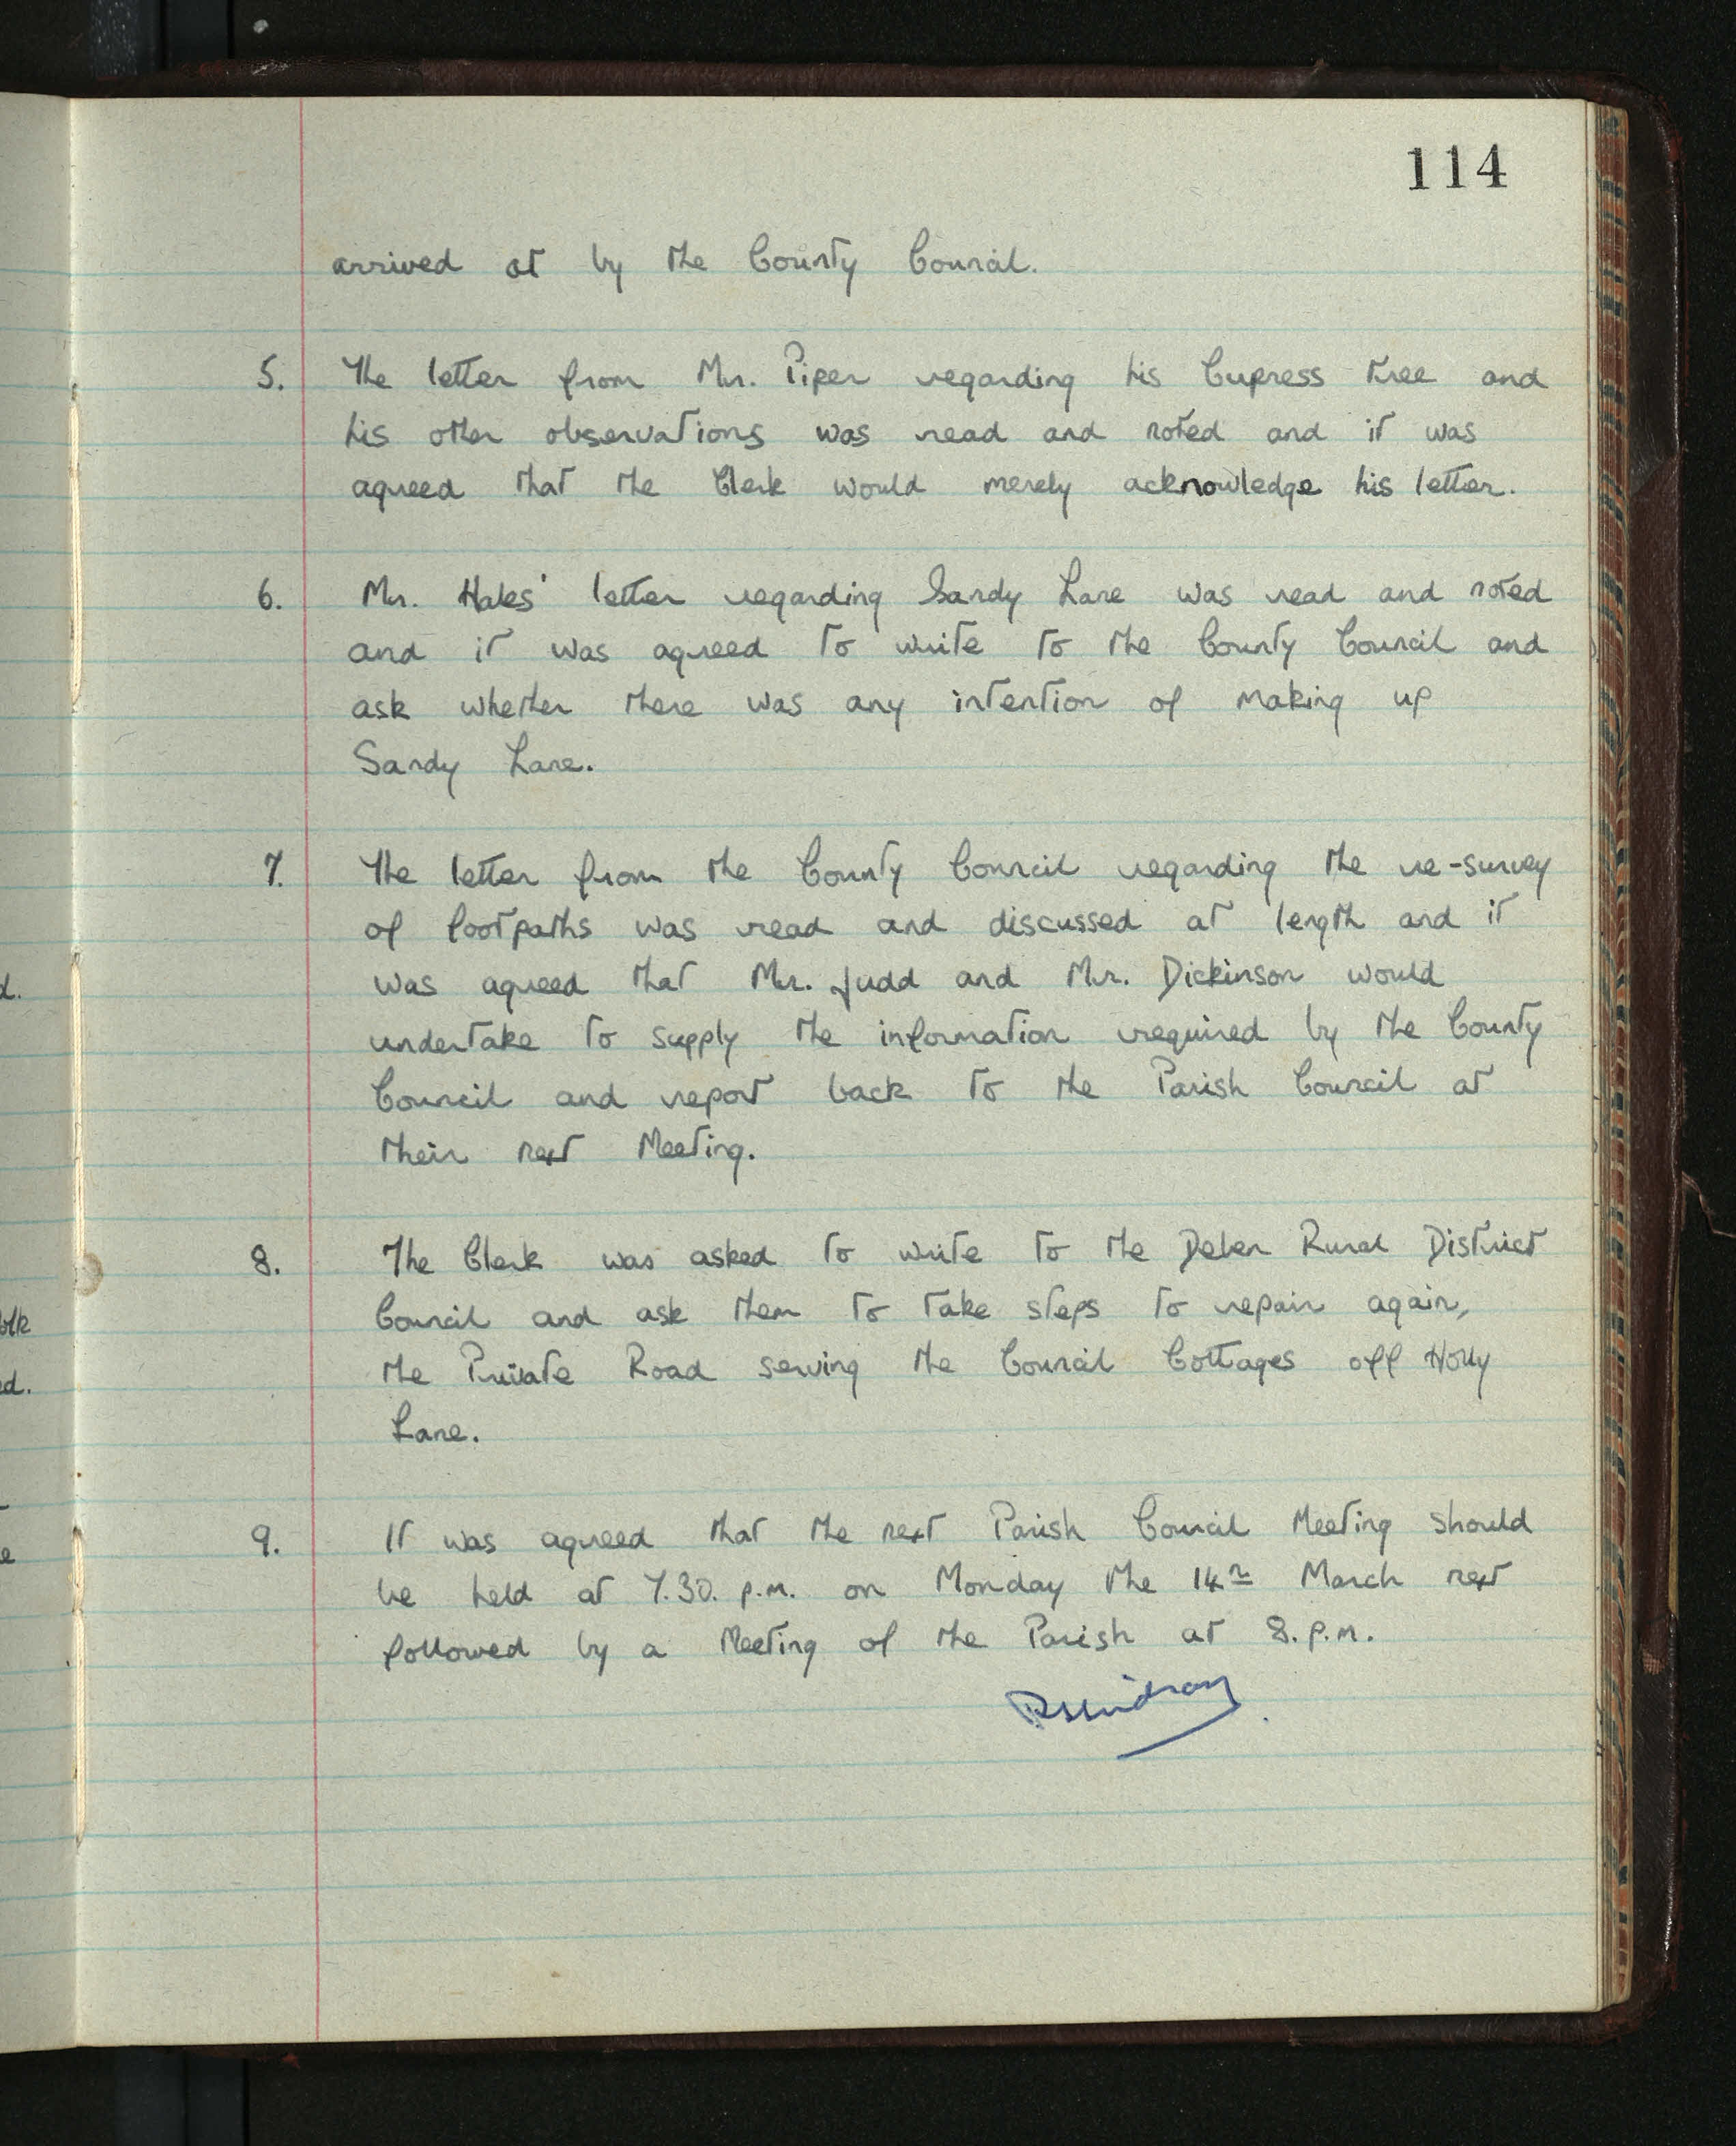 114
arrived at by the County Council.
5. The letter from Mr. Piper regarding his Cupress tree and
his other observations was read and noted and it was
agreed that the Clerk would merely acknowledge his letter.
6. Mr. Hales' letter regarding Sandy Lane was read and noted
and it was agreed to write to the County Council and
ask whether there was any intention of making up
Sandy Lane.
7. The letter from the County Council regarding the re-survey
of footpaths was read and discussed at length and it
was agreed that Mr. Judd and Mr. Dickinson would
undertake to supply the information required by the County
Council and report back to the Parish Council at
their next Meeting.
8. The Clerk was asked to write to the Deben Rural District
Council and ask them to take steps to repair again,
the Private Road serving the Council Cottages off Holly
Lane.
9. It was agreed that the next Parish Council Meeting should
be held at 7.30. p.m. on Monday the 14th March next
followed by a Meeting of the Parish at 8. p.m.